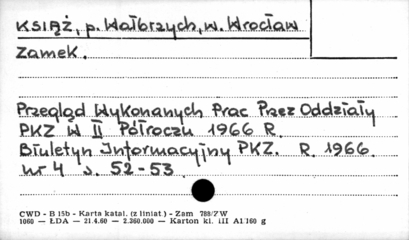 KSIĄŻ, p. Wałbrzych, w. Wrocław
Zamek.
Przegląd Wykonanych Prac Przez Oddziały
PKZ W II Półroczu 1966 R.
Biuletyn Informacyjny PKZ. R. 1966.
nr 4 s. 52-53
CWD - B 15b - Karta katal. (z liniat.) - Zam 788/ZW
1060 — ŁDA — 21.4.60 — 2.360.000 — Karton kl. III A1/160 g